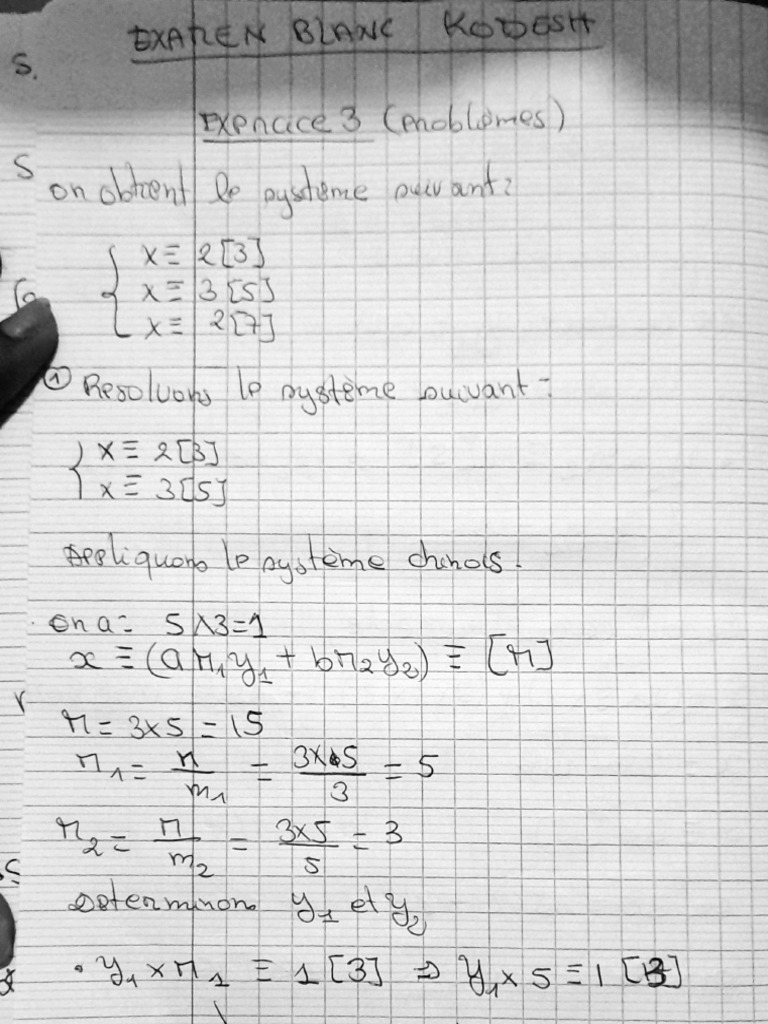 EXAMEN BLANC KODESH
S.
Exercice 3 (problèmes)
S
on obtient le système suivant:
x ≡ 2[3]
x ≡ 3[5]
x ≡ 2[7]
① Resoluons le système suivant:
x ≡ 2[3]
x ≡ 3[5]
Appliquons le système chinois.
on a: 5∧3=1
x ≡ (aM₁y₁ + bM₂y₂) ≡ [M]
M = 3×5 = 15
M₁ = M/m₁ = 3×5/3 = 5
M₂ = M/m₂ = 3×5/5 = 3
Determinons y₁ et y₂
• y₁ × M₁ ≡ 1 [3] ⇒ y₁ × 5 ≡ 1 [3]